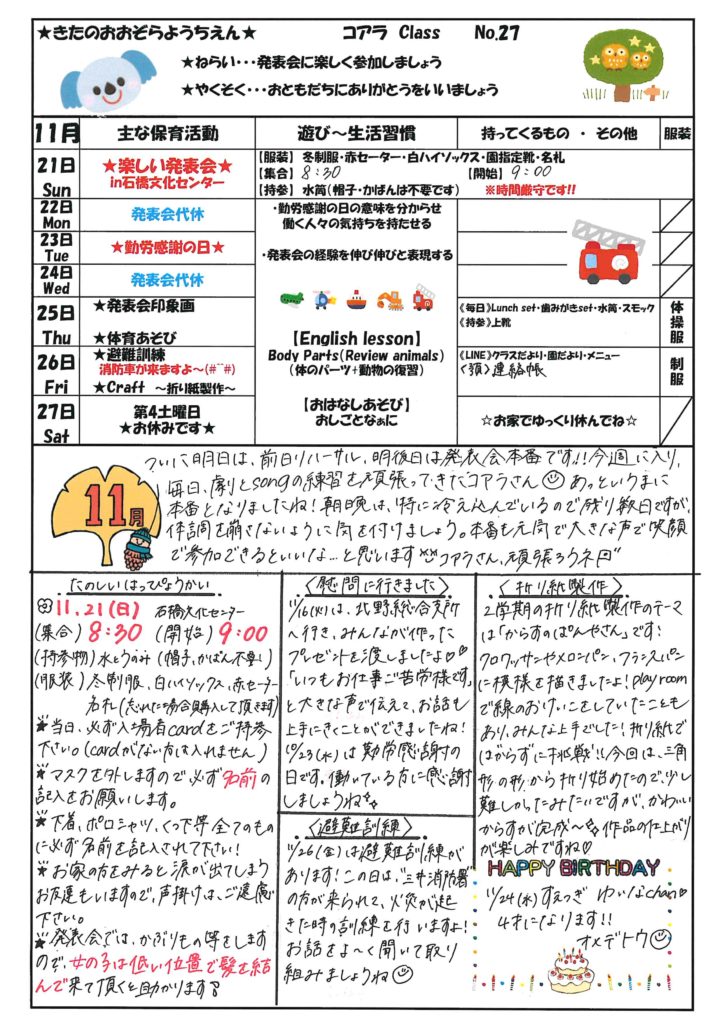 ★きたのおおぞらようちえん★
コアラ Class No.27
★ねらい・・・発表会に楽しく参加しましょう
★やくそく・・・おともだちにありがとうをいいましょう
11月 主な保育活動 遊び～生活習慣 持ってくるもの ・ その他 服装
21日 Sun
★楽しい発表会★
in石橋文化センター
【服装】 冬制服・赤セーター・白ハイソックス・園指定靴・名札
【集合】 8:30 【開始】 9:00
【持参】 水筒（帽子・かばんは不要です） ※時間厳守です!!
22日 Mon
発表会代休
23日 Tue
★勤労感謝の日★
24日 Wed
発表会代休
・勤労感謝の日の意味を分からせ
働く人々の気持ちを持たせる
・発表会の経験を伸び伸びと表現する
25日 Thu
★発表会印象画
★体育あそび
《毎日》Lunch set・歯みがきset・水筒・スモック
《持参》上靴
体操服
26日 Fri
★避難訓練
消防車が来ますよ～(#^^#)
★Craft ～折り紙製作～
【English lesson】
Body Parts（Review animals）
（体のパーツ+動物の復習）
《LINE》クラスだより・園だより・メニュー
<預>連絡帳
制服
27日 Sat
第4土曜日
★お休みです★
【おはなしあそび】
おしごとなぁに
☆お家でゆっくり休んでね☆
11月
ついに明日は、前日リハーサル、明後日は発表会本番です!!今週に入り、
毎日、劇とsongの練習を頑張ってきたコアラさん あっというまに
本番となりましたね！朝晩は、特に冷え込んでいるので残り数日ですが、
体調を崩さないように気を付けましょう。本番も元気で大きな声で笑顔
で参加できるといいな…と思います コアラさん、頑張ろうネ
たのしいはっぴょうかい
11.21(日) 石橋文化センター
(集合) 8:30 (開始) 9:00
(持参物) 水とうのみ (帽子、かばん不要!)
(服装) 冬制服、白ハイソックス、赤セーター
名札(忘れた場合購入して頂きます)
★当日、必ず入場者cardをご持参
下さい。(cardがない方は入れません)
★マスクを外しますので必ず名前の
記入をお願いします。
★下着、ポロシャツ、くつ下等全てのもの
に必ず名前を記入されて下さい!
★お家の方をみると涙が出てしまう
お友達もいますので、声掛けは、ご遠慮
下さい。
★発表会では、かぶりもの等をします
ので、女の子は低い位置で髪を結
んで来て頂くと助かります
<慰問に行きました>
11/16(火)は、北野総合支所
へ行き、みんなが作った
プレゼントを渡しましたよ♡♡
「いつもお仕事ご苦労様です」
と大きな声で伝えて、お話も
上手にきくことができましたね!
11/23(水)は勤労感謝の
日です。働いている方に感謝
しましょうね
<避難訓練>
11/26(金)は避難訓練が
あります!この日は、三井消防署
の方が来られて、火災が起
きた時の訓練を行いますよ!
お話をよ～く聞いて取り
組みましょうね
<折り紙製作>
2学期の折り紙製作のテーマ
は「からすのぱんやさん」です!
クロワッサンやメロンパン、フランスパン
に模様を描きましたよ!playroom
で線のおけいこをしていたことも
あり、みんな上手でした!折り紙で
はからすに挑戦!!今回は、三角
形の形から折り始めたので、少し
難しかったみたいですが、かわいい
からすが完成～作品の仕上がり
が楽しみですね♡
HAPPY BIRTHDAY
11/24(水)すえつぎ ゆいなchan♡
4才になります!!
オメデトウ